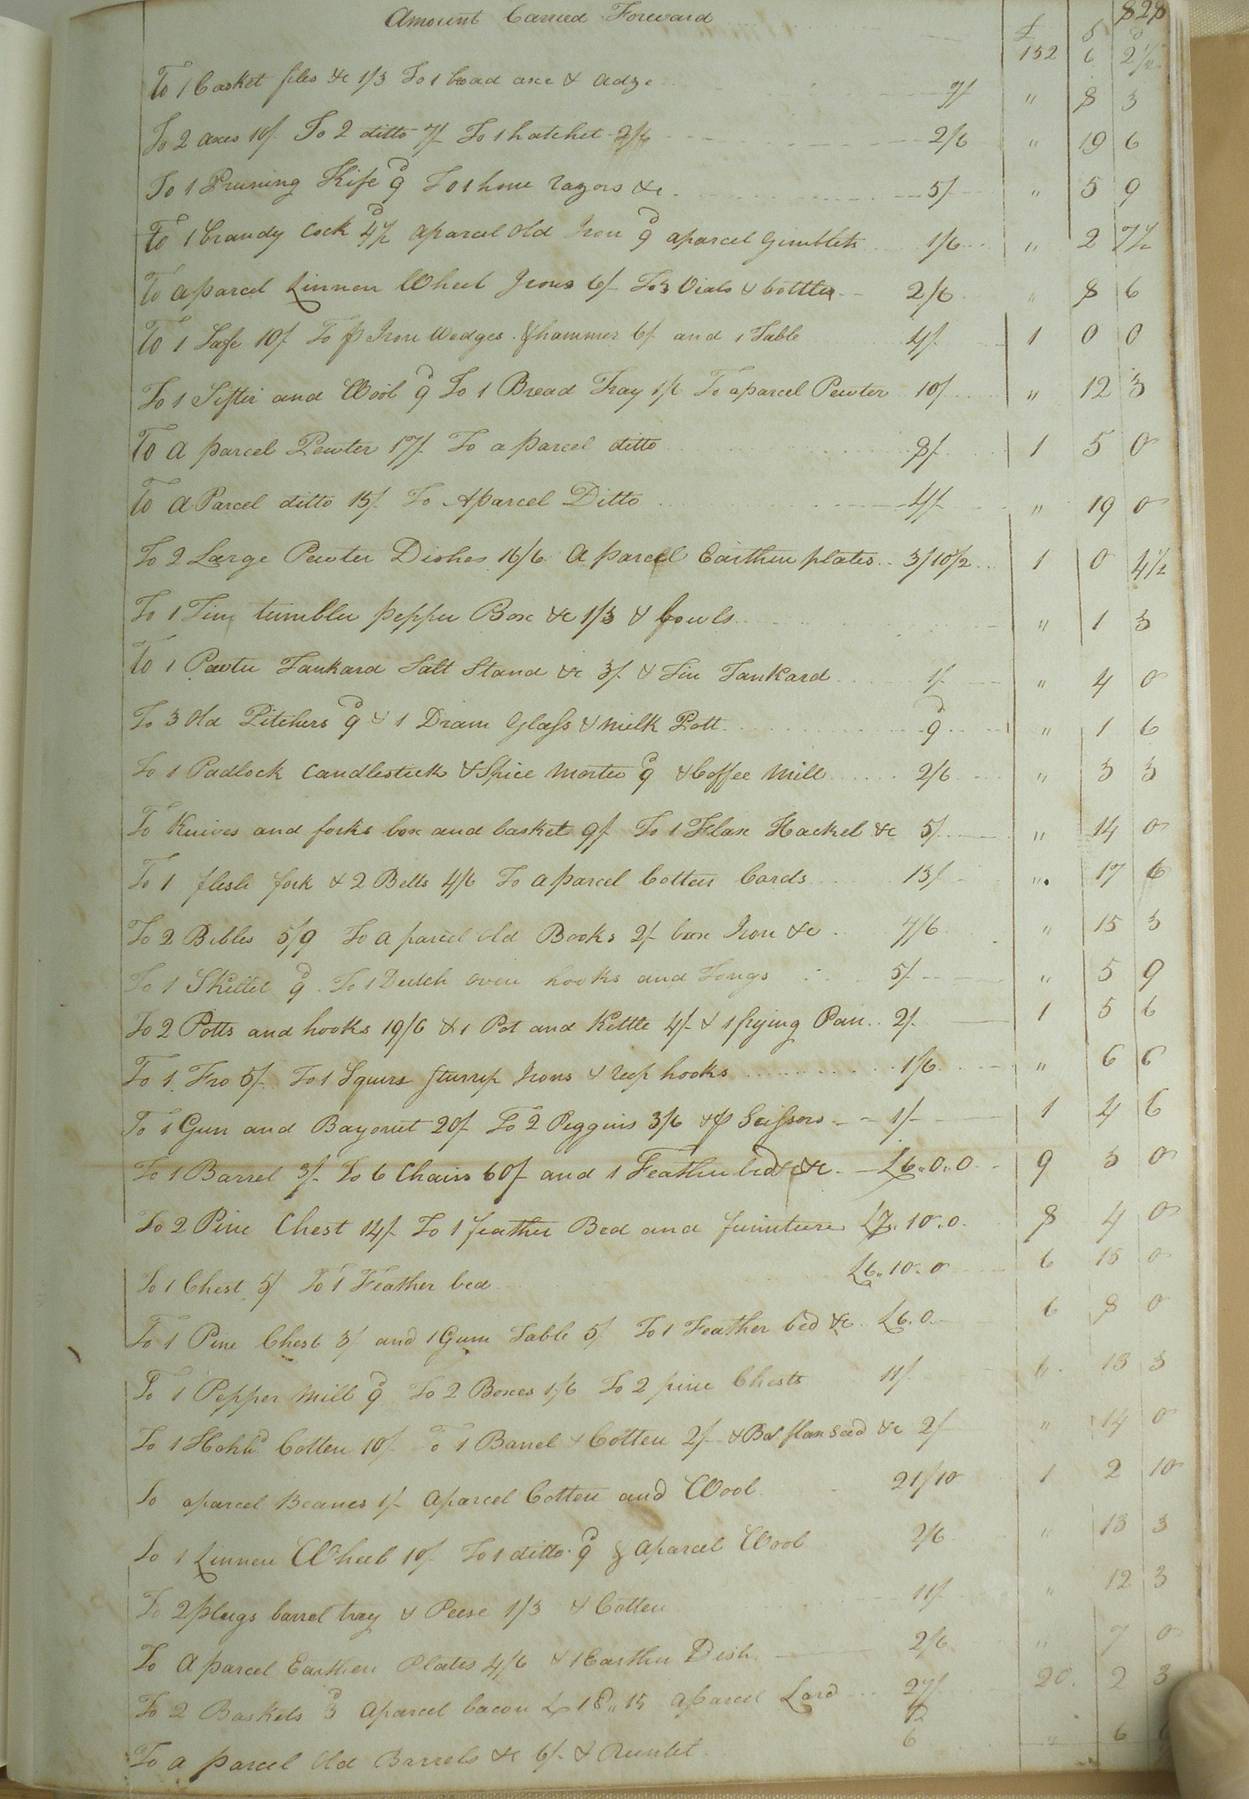 828
Amount Carried Forward £ S D
152 6 2½
To 1 Casket files &c 1/3 To 1 broad axe & adze 7/ " 8 3
To 2 axes 10/ To 2 ditto 7/ To 1 hatchet 2/6 2/6 " 19 6
To 1 Pruning Kife 9d To 1 hone razors &c 5/ " 5 9
To 1 brandy Cock 4½d a parcel old Iron 9d a parcel Gimblets 1/6 " 2 7½
To a parcel Linnen Wheel Irons 6/ To 3 Vials & bottles 2/6 " 8 6
To 1 Safe 10/ To Iron Wedges & hammer 6/ and 1 Table 4/ 1 0 0
To 1 Sifter and Wool 9d To 1 Bread Tray 1/6 To a parcel Pewter 10/ " 12 3
To a parcel Pewter 17/ To a parcel ditto 8/ 1 5 0
To a Parcel ditto 15/ To A parcel Ditto 4/ " 19 0
To 2 Large Pewter Dishes 16/6 a parcel Earthen plates 3/10½ 1 0 4½
To 1 Tin tumbler pepper Box &c 1/3 & bowls " 1 3
To 1 Pewter Tankard Salt Stand &c 3/ & Tin Tankard 1/ " 4 0
To 3 Old Pitchers 9d & 1 Dram Glass & milk Pott 9d " 1 6
To 1 Padlock Candlestick & Spice Morter 9d & Coffee Mill 2/6 " 3 3
To Knives and forks box and basket 9/ To 1 Flax Hackel &c 5/ " 14 0
To 1 flesh fork & 2 Bells 4/6 To a parcel Cotten Cards 13/ " 17 6
To 2 Bibles 5/9 To a parcel Old Books 2/ box Iron &c 7/6 " 15 3
To 1 Skillet 9d To 1 Dutch oven hooks and Tongs 5/ " 5 9
To 2 Potts and hooks 19/6 & 1 Pot and Kettle 4/ & 1 frying Pan 2/ 1 5 6
To 1 Fro 5/ To 1 Squirs sturrip Irons & reep hooks 1/6 " 6 6
To 1 Gun and Bayonet 20/ To 2 Peggins 3/6 & Scissors 1/ 1 4 6
To 1 Barrel 3/ To 6 Chairs 60/ and 1 Feather bed &c £6.0.0 9 3 0
To 2 Pine Chest 14/ To 1 feather Bed and furniture £7.10.0 8 4 0
To 1 Chest 5/ To 1 Feather bed £6.10.0 6 15 0
To 1 Pine Chest 3/ and 1 Gum Table 5/ To 1 Feather bed &c £6.0 6 8 0
To 1 Pepper Mill 9d To 2 Boxes 1/6 To 2 pine Chests 11/ 13 3
To 1 Hohhd Cotten 10/ To 1 Barrel & Cotten 2/ & Bar flax seed &c 2/ " 14 0
To a parcel Beanes 1/ a parcel Cotten and Wool 21/10 1 2 10
To 1 Linnen Wheel 10/ To 1 ditto 9d & a parcel Wool 2/6 " 13 3
To 2 plugs barrel tray & Pease 1/3 & Cotten 11/ " 12 3
To a parcel Earthen Plates 4/6 & 1 Earthen Dish 2/6 " 7 0
To 2 Baskets 3d a parcel bacon £18..15 a parcel Lard 27/ 20 2 3
To a parcel Old Barrels &c 6/ & Runlet 6 " 6